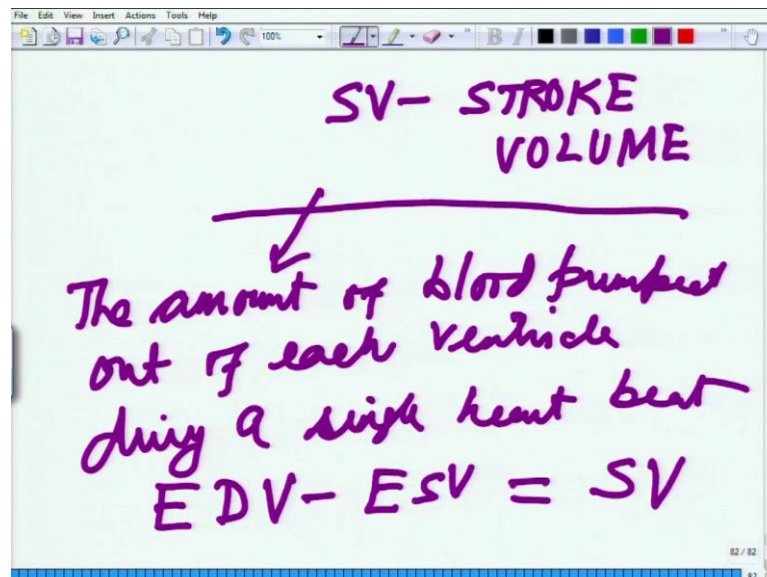 File Edit View Insert Actions Tools Help
100%
B I
SV- STROKE
VOLUME
The amount of blood pumped
out of each ventricle
during a single heart beat
EDV- ESV = SV
82 / 82
82